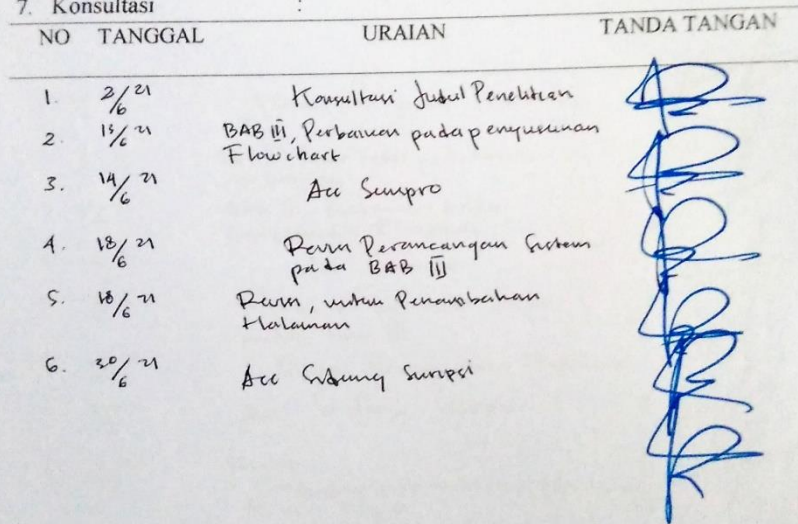 7. Konsultasi :
NO TANGGAL URAIAN TANDA TANGAN
1. 2/6 21 Konsultasi Judul Penelitian
2. 13/6 21 BAB III, Perbaikan pada penyusunan
Flowchart
3. 14/6 21 Acc Sempro
4. 18/6 21 Revisi Perancangan Sistem
pada BAB III
5. 18/6 21 Revisi, untuk Penambahan
Halaman
6. 30/6 21 Acc Sidang Skripsi